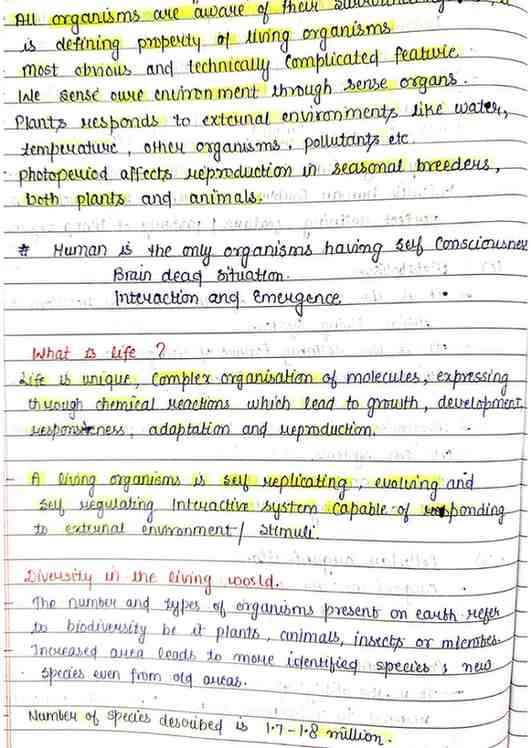 All organisms are aware of their
is defining property of living organisms
most obvious and technically complicated feature
We sense oure environment through sense organs.
Plants responds to external environments like water,
temperature, other organisms, pollutants etc.
photoperiod affects reproduction in seasonal breeders,
both plants and animals.
* Human is the only organisms having self consciousness
Brain dead situation.
Interaction and Emergence
What is life ?
Life is unique, complex organisation of molecules, expressing
through chemical reactions which lead to growth, development,
adaptation and reproduction.
- A living organisms is self replicating, evolving and
self regulating Interactive system capable of responding
to external environment / stimuli.
Diversity in the living world.
- The number and types of organisms present on earth refer
to biodiversity be it plants, animals, insects or microbes.
- Increased area leads to more identified species, new
species even from old areas.
- Number of species described is 1.7-1.8 million.